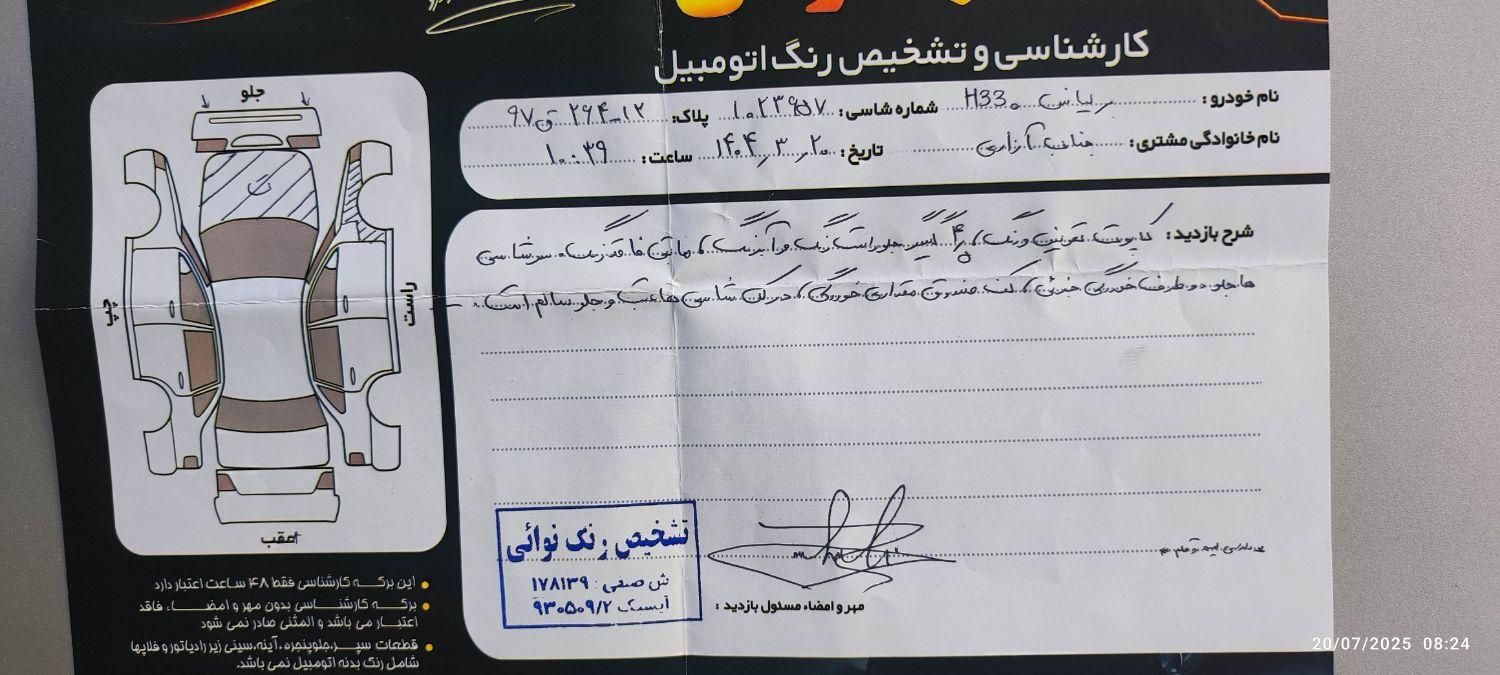 کارشناسی و تشخیص رنگ اتومبیل
نام خودرو : برلیانس H330 شماره شاسی : 1023957 پلاک: 12-264 ق 97
نام خانوادگی مشتری : جناب آزادی تاریخ : 1404,3,20 ساعت : 10:39
شرح بازدید : کاپوت تعویض ورنگ، گلگیر جلو راست رنگ مابقی فاقد رنگ سرشاسی
ها جلو دو طرف خوردگی جزئی، کف صندوق مقداری خوردگی، شاسی ها عقب و جلو سالم است
جلو
ت
راست
چپ
عقب
تشخیص رنگ نوائی
ش صنفی : 178139
آیسیک 930509/2
مهر و امضاء مسئول بازدید :
این برگه کارشناسی فقط 48 ساعت اعتبار دارد
برگه کارشناسی بدون مهر و امضاء، فاقد
اعتبار می باشد و المثنی صادر نمی شود
قطعات سپر،جلوپنجره، آینه،سینی زیر رادیاتور و فلاپها
شامل رنگ بدنه اتومبیل نمی باشد.
20/07/2025 08:24